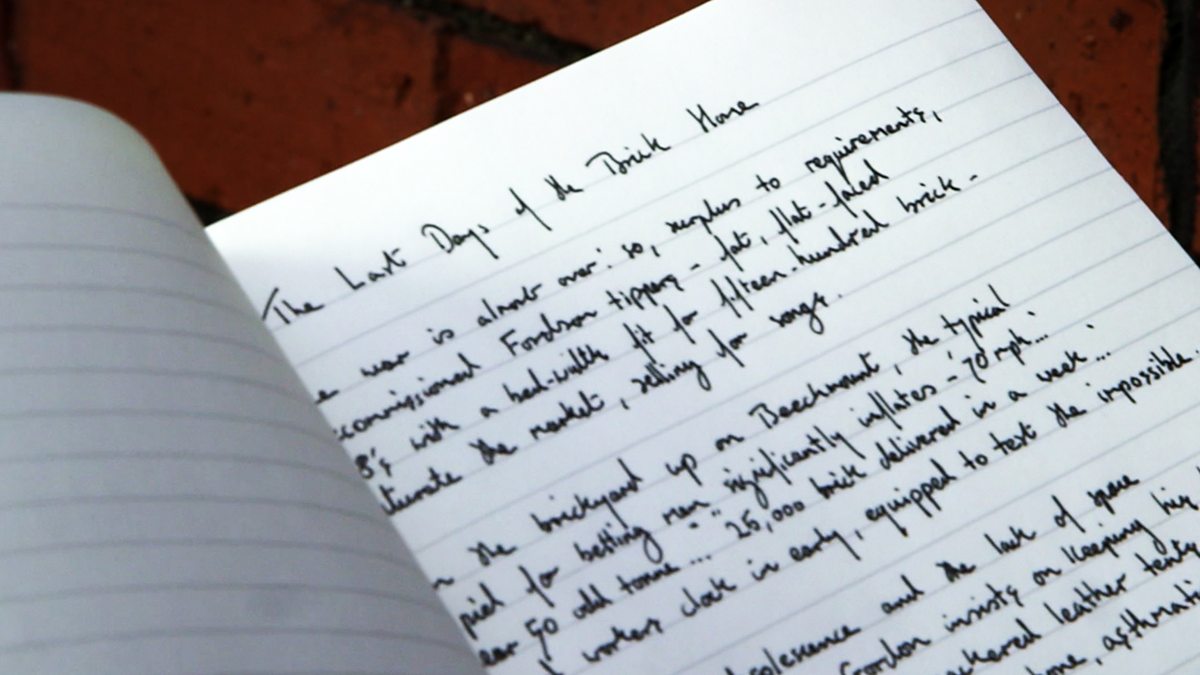 The Last Days of the Brick Horse
e war is almost over: so, surplus to requirements,
commissioned Fordson tippers - fat, flat-faced
8's with a bed-width fit for fifteen-hundred brick -
turate the market, selling for songs.
n the brickyard up on Beechmount, the typical
pied for betting men significantly inflates - 70 mph...
ear 50 odd tonne... 25,000 brick delivered in a week...
workers clock in early, equipped to test the impossible.
bsolescence and the lack of space
Gordon insists on keeping his
ckered leather tents
bone, asthmati